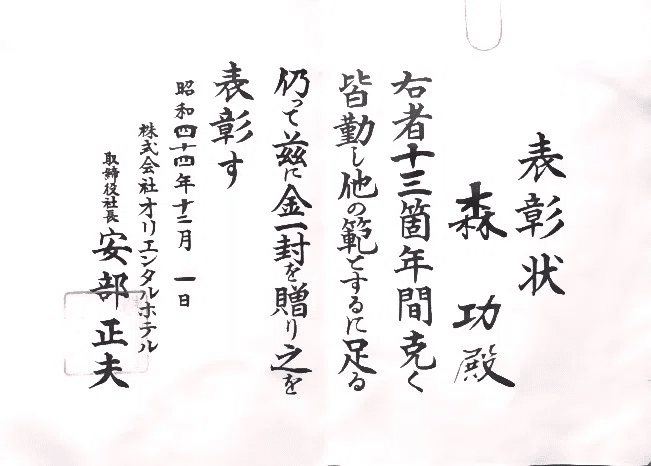 表彰状
森功殿
右者十三箇年間克く
皆勤し他の範とするに足る
仍って茲に金一封を贈り之を
表彰す
昭和四十四年十二月一日
株式会社オリエンタルホテル
取締役社長 安部正夫